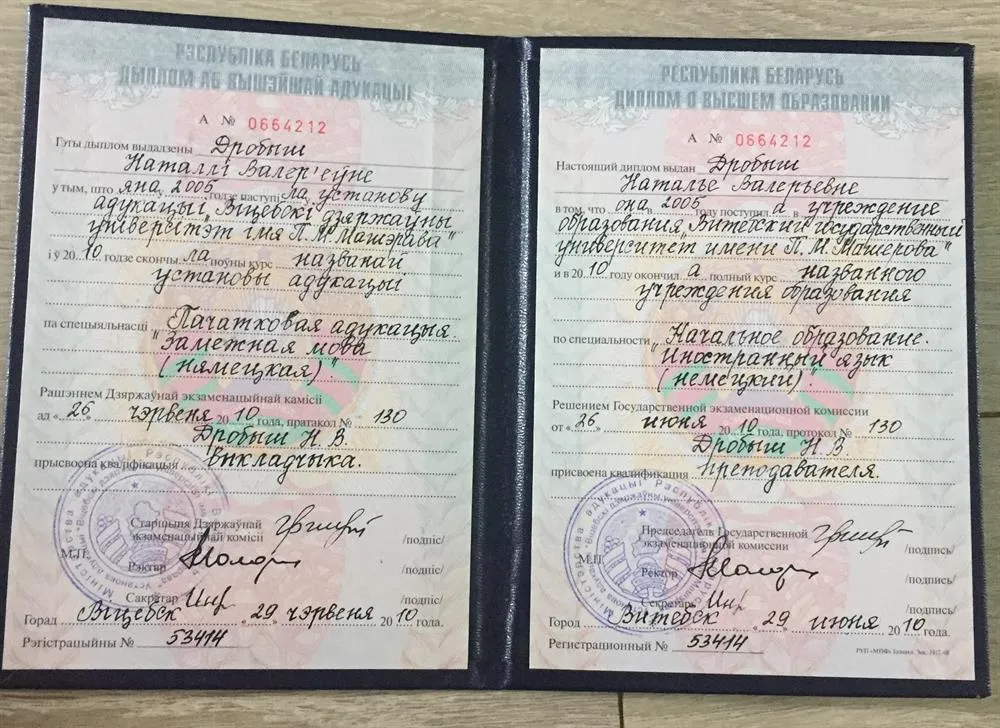 РЭСПУБЛІКА БЕЛАРУСЬ
ДЫПЛОМ АБ ВЫШЭЙШАЙ АДУКАЦЫІ
А № 0664212
Гэты дыплом выдадзены Дробыш
Наталлі Валер'еўне
у тым, што яна ў 2005 годзе наступіла ва ўстанову
адукацыі "Віцебскі дзяржаўны
ўніверсітэт імя П.М. Машэрава"
і ў 2010 годзе скончыла поўны курс названай
установы адукацыі
па спецыяльнасці "Пачатковая адукацыя.
Замежная мова
(нямецкая)"
Рашэннем Дзяржаўнай экзаменацыйнай камісіі
ад «26 чэрвеня 2010 года, пратакол № 130
Дробыш Н.В.
прысвоена кваліфікацыя
выкладчыка.
Старшыня Дзяржаўнай
экзаменацыйнай камісіі /подпіс/
М.П.
Рэктар /подпіс/
Сакратар /подпіс/
Горад Віцебск «29» чэрвеня 2010 года.
Рэгістрацыйны № 53414
РЕСПУБЛИКА БЕЛАРУСЬ
ДИПЛОМ О ВЫСШЕМ ОБРАЗОВАНИИ
А № 0664212
Настоящий диплом выдан Дробыш
Наталье Валерьевне
в том, что она в 2005 году поступила в учреждение
образования "Витебский государственный
университет имени П.М. Машерова"
и в 2010 году окончила полный курс названного
учреждения образования
по специальности "Начальное образование.
Иностранный язык
(немецкий)".
Решением Государственной экзаменационной комиссии
от «26» июня 2010 года, протокол № 130
Дробыш Н.В
присвоена квалификация преподавателя.
Председатель Государственной
экзаменационной комиссии /подпись/
М.П.
Ректор /подпись/
Секретарь /подпись/
Город Витебск «29» июня 2010 года.
Регистрационный № 53414